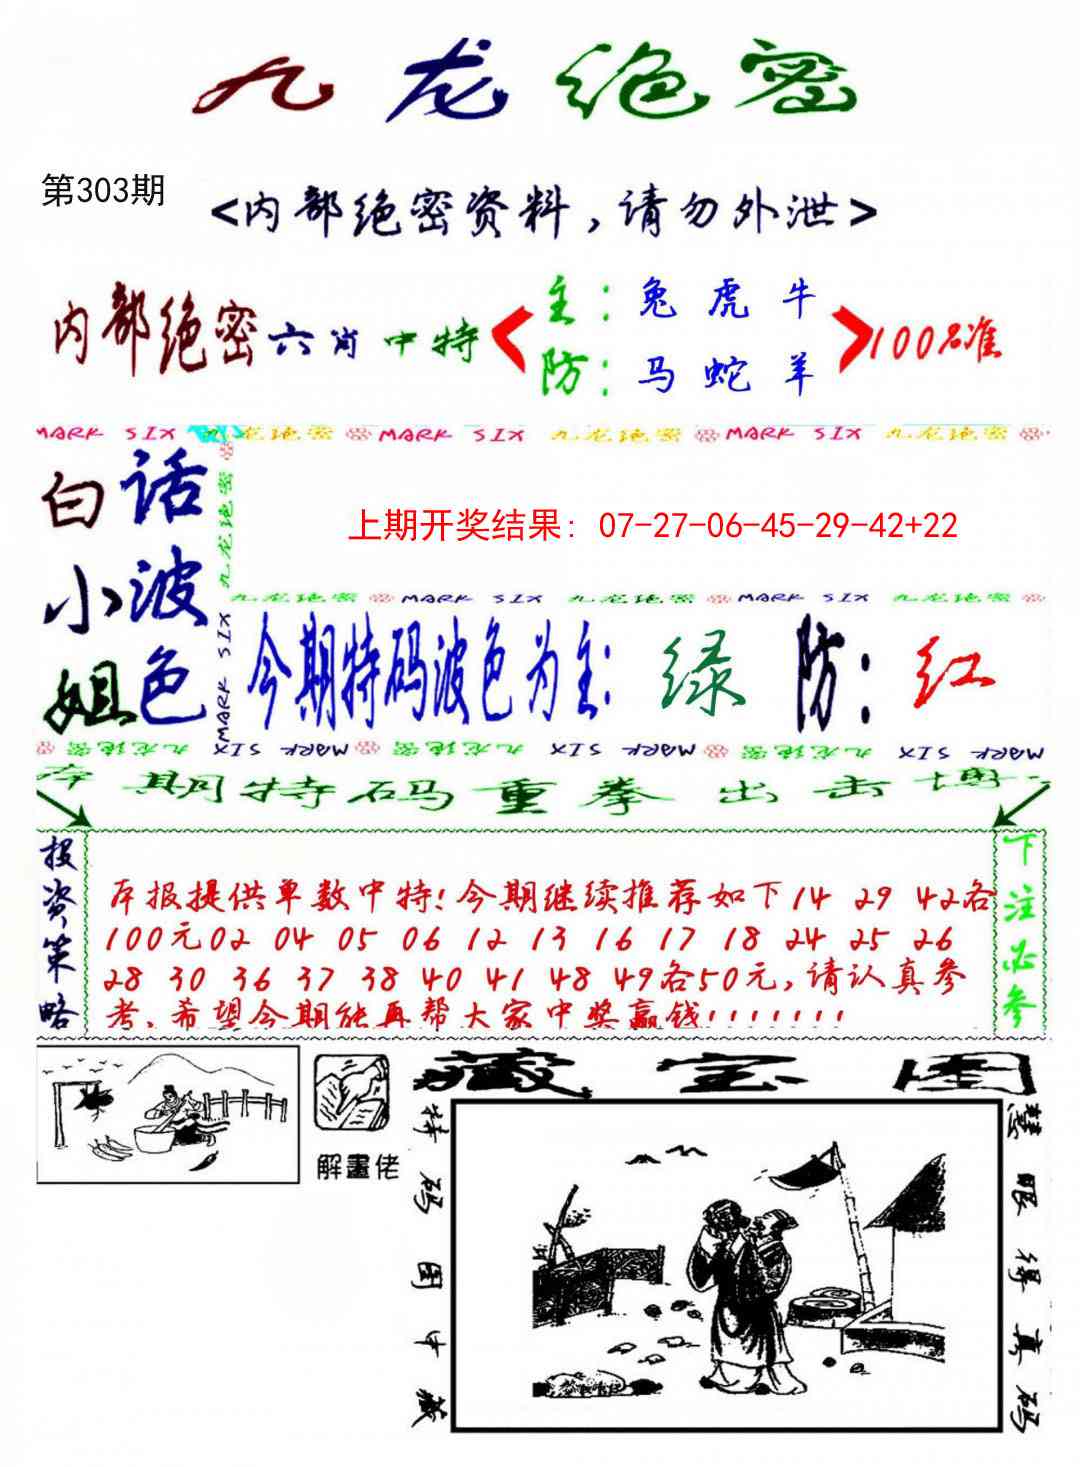 九龙绝密
第303期
<内部绝密资料，请勿外泄>
内部绝密六肖中特
主：兔 虎 牛
防：马 蛇 羊
100%准
MARK SIX 九龙绝密 MARK SIX 九龙绝密 MARK SIX 九龙绝密
白小姐
话波色
九龙绝密
MARK SIX
上期开奖结果: 07-27-06-45-29-42+22
九龙绝密 MARK SIX 九龙绝密 MARK SIX 九龙绝密
今期特码波色为主: 绿 防: 红
九龙绝密 MARK SIX 九龙绝密 MARK SIX 九龙绝密 MARK SIX
本期特码重拳出击博
投资策略
本报提供单数中特!今期继续推荐如下14 29 42各
100元02 04 05 06 12 13 16 17 18 24 25 26
28 30 36 37 38 40 41 48 49各50元,请认真参
考,希望今期能再帮大家中奖赢钱!!!!!!!
下注必参
解畫佬
藏宝图
特码图中藏
慧眼得真码